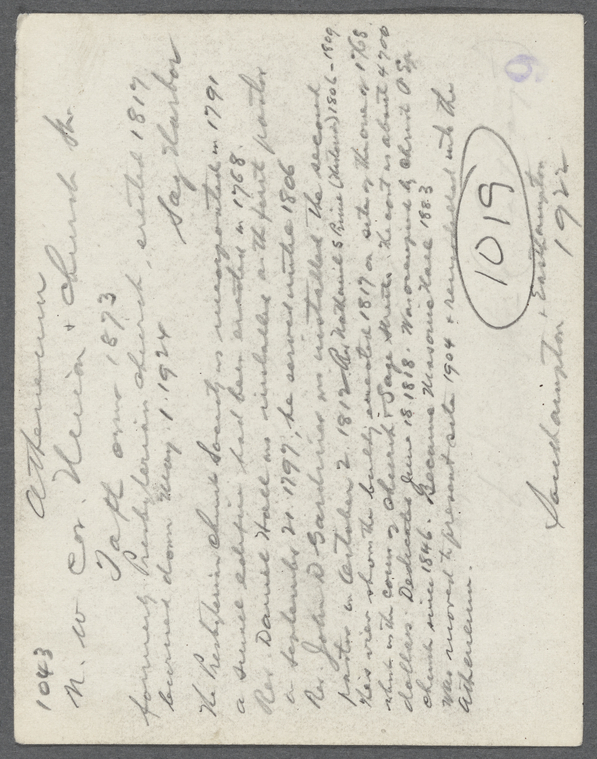 1043
Atheneum
N. W Cor. Union + Church Sts.
Taft owns 1873
formerly Presbyterian Church, erected 1817
burned down May 1 1924 Sag Harbor
The Presbyterian Church Society was incorporated in 1791
a small edifice had been erected in 1768.
Rev. Daniel Hall was installed as the first pastor
on September 21 1797, he served until 1806
Rev John D Gardiner was installed the second
pastor on October 2 1812 Rev Nathaniel S Prime 1806-1809
This view shows the bldg erected 1817 on site of the one of 1768
which is the corner of Church + Sage Streets. The cost was about 4700
dollars. Dedicated June 18 1818. Was occupied by Christ P Ep
church since 1846. Became Masonic Hall 1883
Was moved to present site 1904 + remodelled into the
Atheneum.
1019
Southampton + Easthampton
1922
9